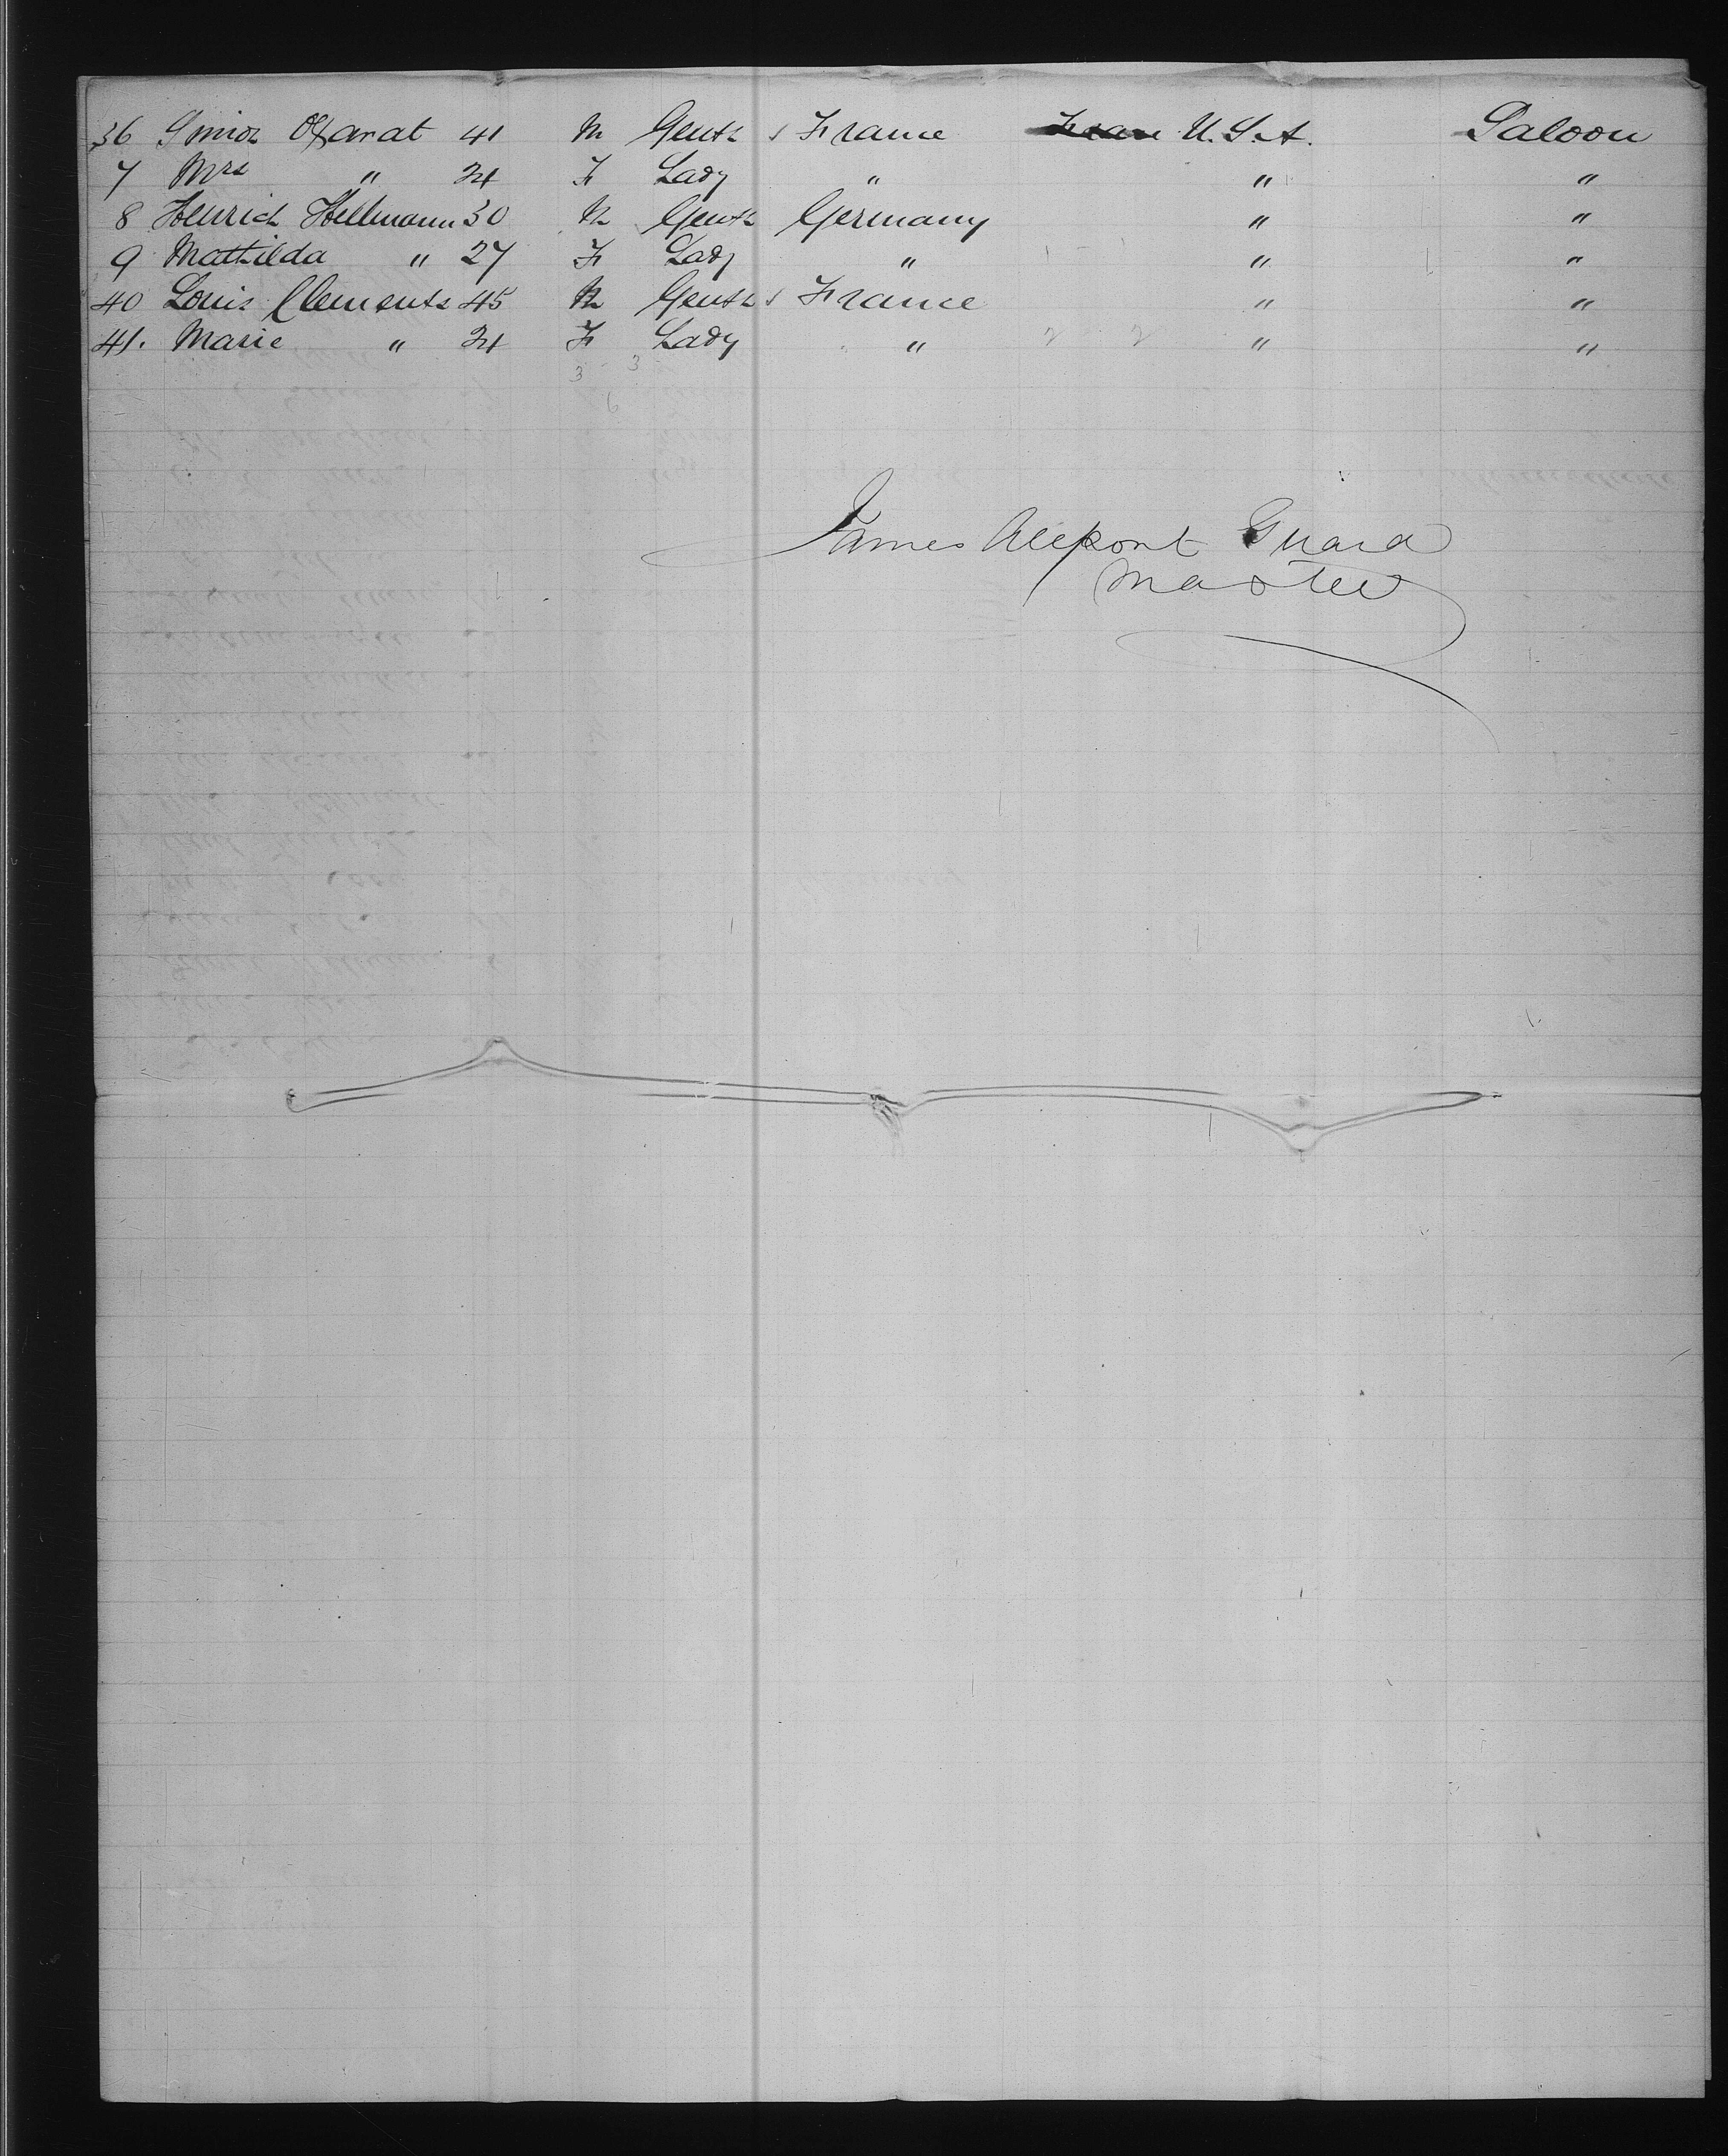 36 Ofarat 41 M Gentn France U.S.A. Saloon
7 Mrs " 24 F Lady " " "
8 Henrich Hellmann 30 M Gentn Germany " "
9 Mathilda " 27 F Lady " " "
40 Louis Clements 45 M Gentn France " "
41. Marie " 24 F Lady " 2 2 " "
3 3
6
James
Master